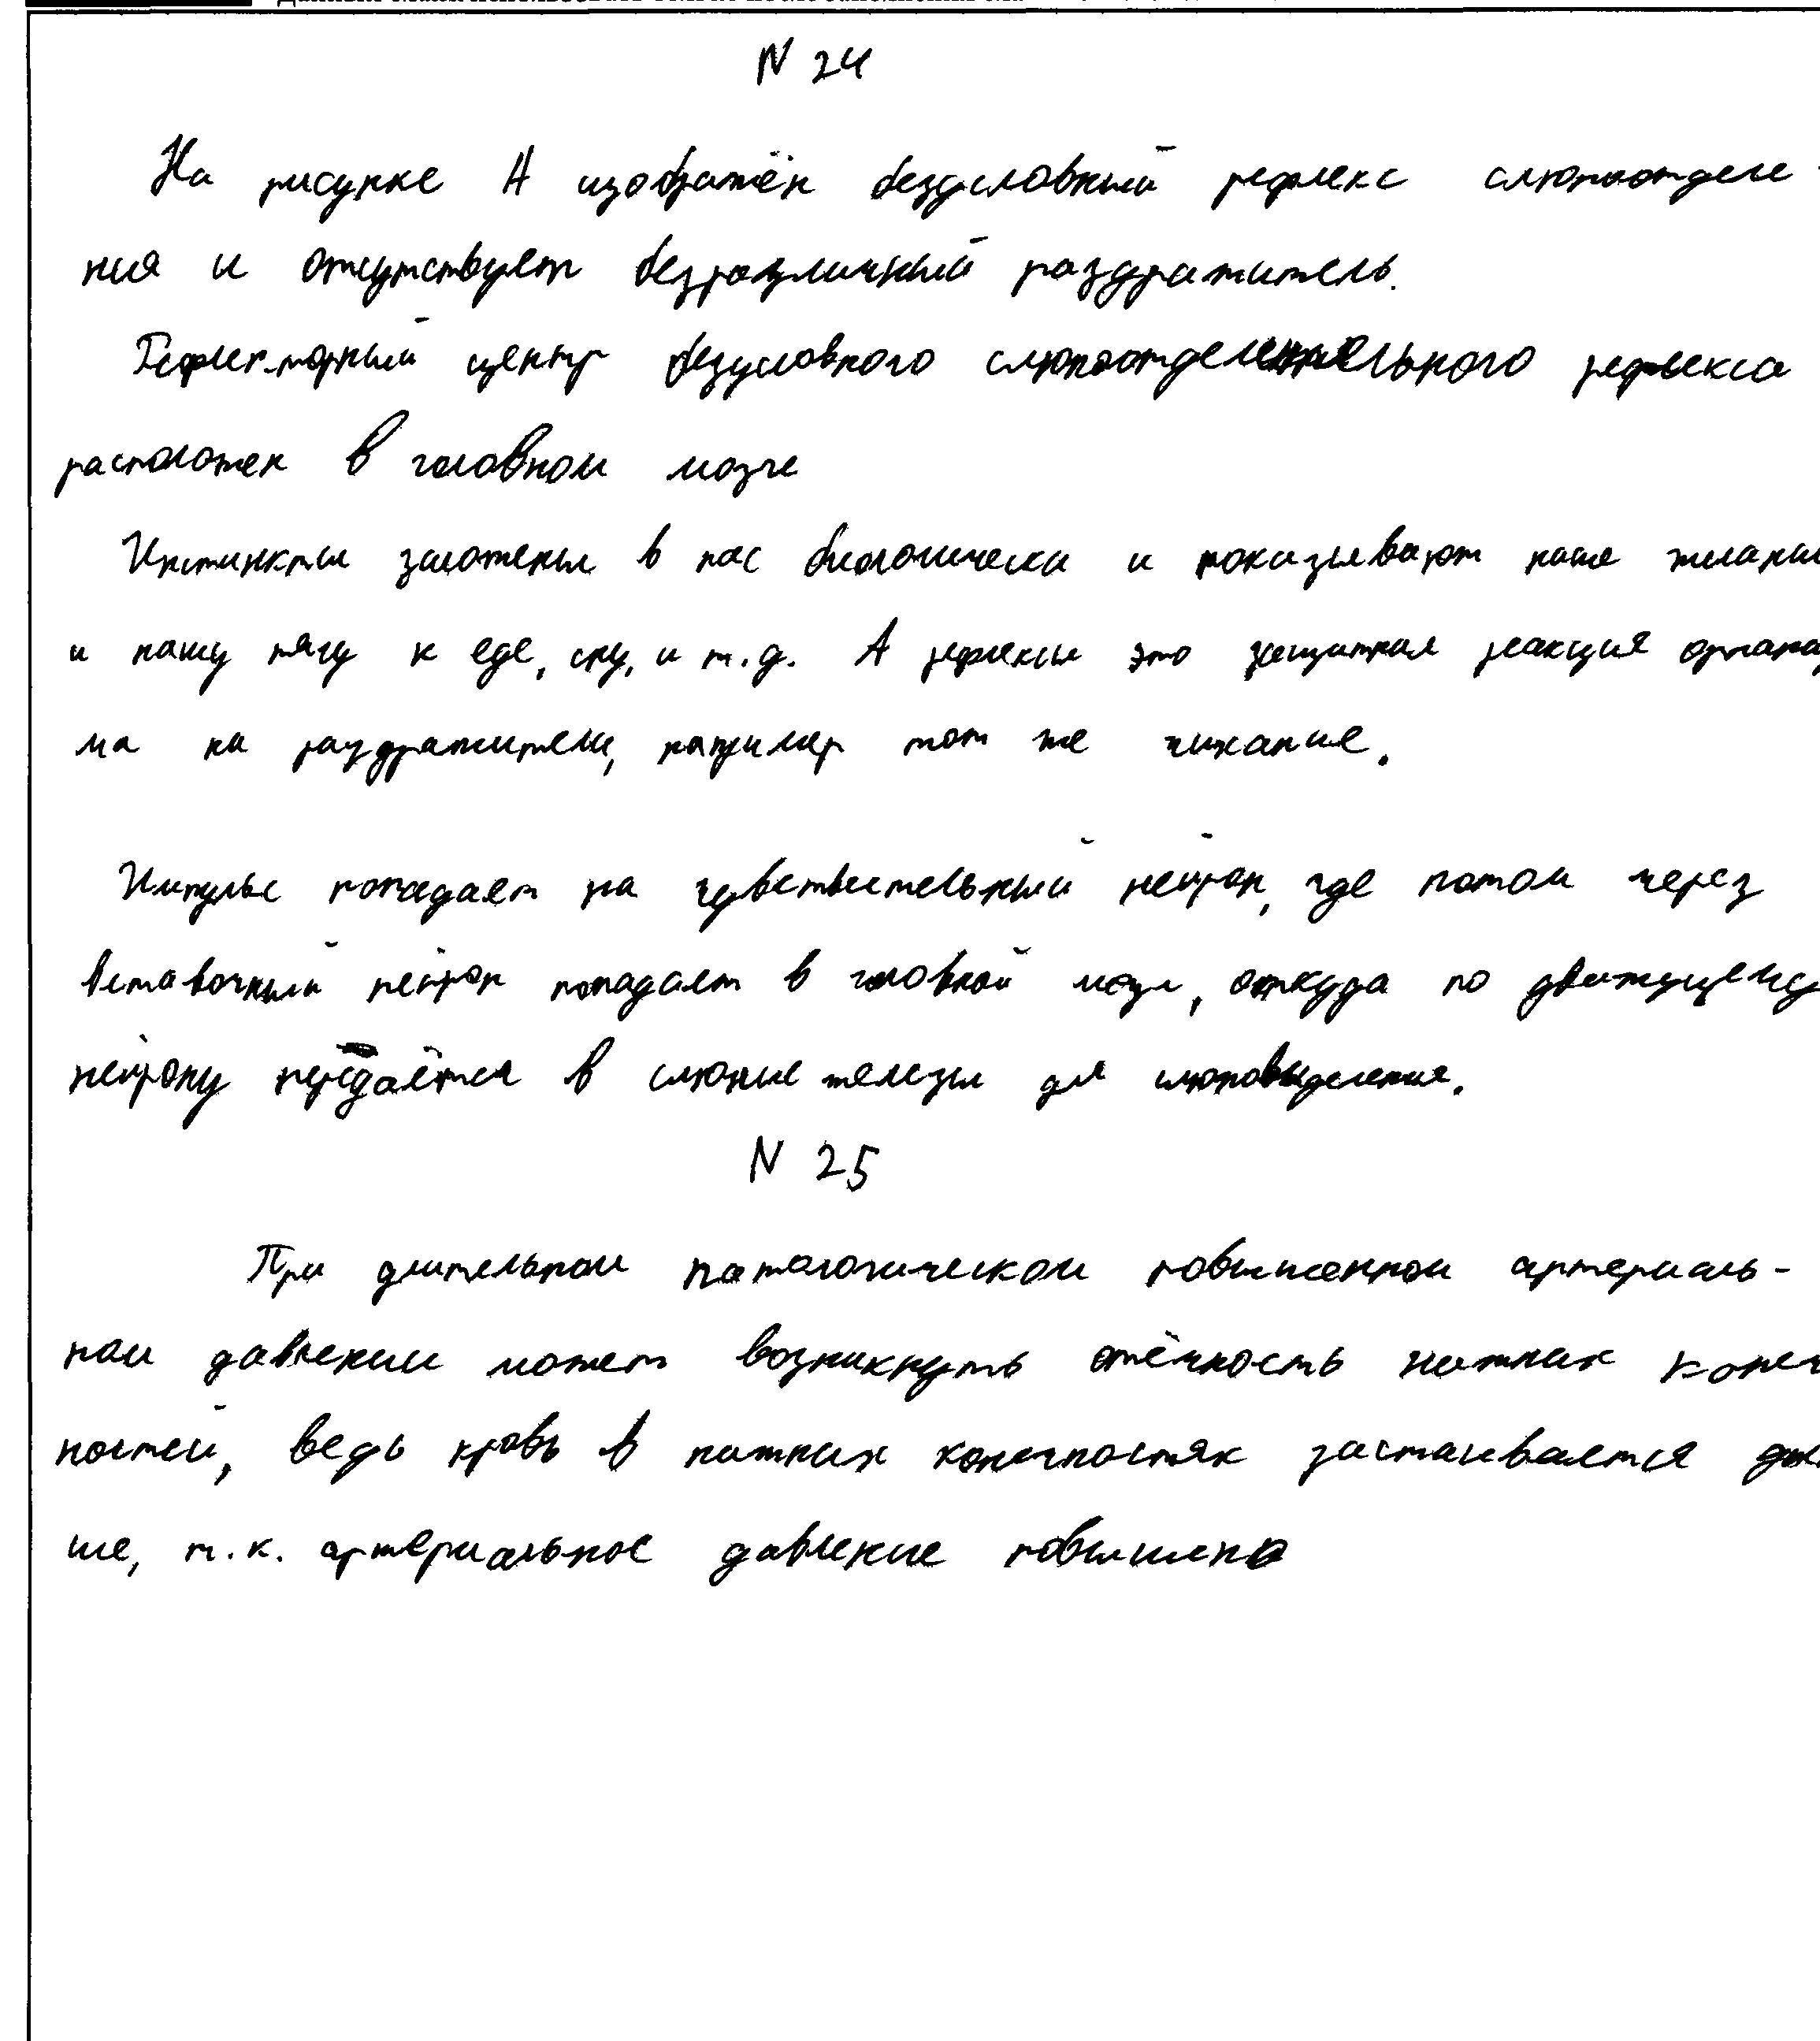 N 24
На рисунке А изображён безусловный рефлекс слюноотделе-
ния и отсутствует безразличный раздражитель.
Рефлекторный центр безусловного слюноотделительного рефлекса
расположен в головном мозге
Инстинкты заложены в нас биологически и показывают наше желани
и нашу тягу к еде, сну, и т.д. А рефлексы это защитная реакция организ
ма на раздражители, например тот же чихание.
Импульс попадает на чувствительный нейрон, где потом через
вставочный нейрон попадает в головной мозг, откуда по движущему
нейрону передаётся в слюные железы для слюновыделения.
N 25
При длительном патологическом повышенном артериаль-
ном давлении может возникнуть отёчность нижних конеч
ностей, ведь кровь в нижних конечностях застаивается
ше, т.к. артериальное давление повышено